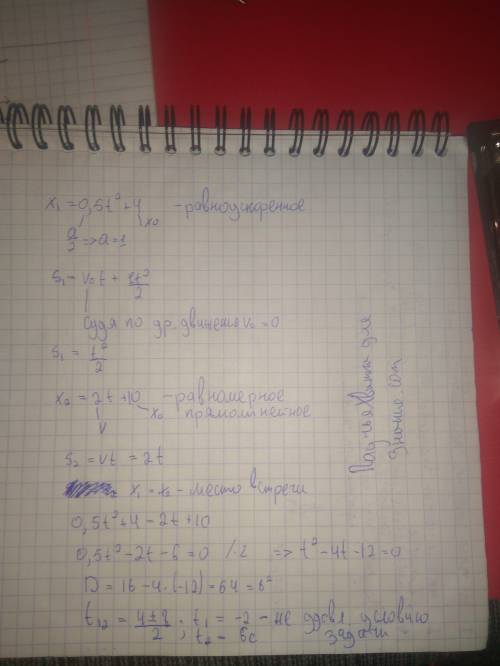 x₁ = 0,5t² + 4 - равноускоренное
x₀
a/2 => a = 1
S₁ = v₀t + at²/2
Судя по ур. движения v₀ = 0
S₁ = t²/2
x₂ = 2t + 10 - равномерное
v x₀ прямолинейное
S₂ = vt = 2t
x₁ = x₂ - место встречи
0,5t² + 4 - 2t + 10
0,5t² - 2t - 6 = 0 /·2 => t² - 4t - 12 = 0
D = 16 - 4·(-12) = 64 = 8²
t₁₂ = 4±8/2 ; t₁ = -2 - не удовл. условию
t₂ = 6c задачи
для
Знание.com